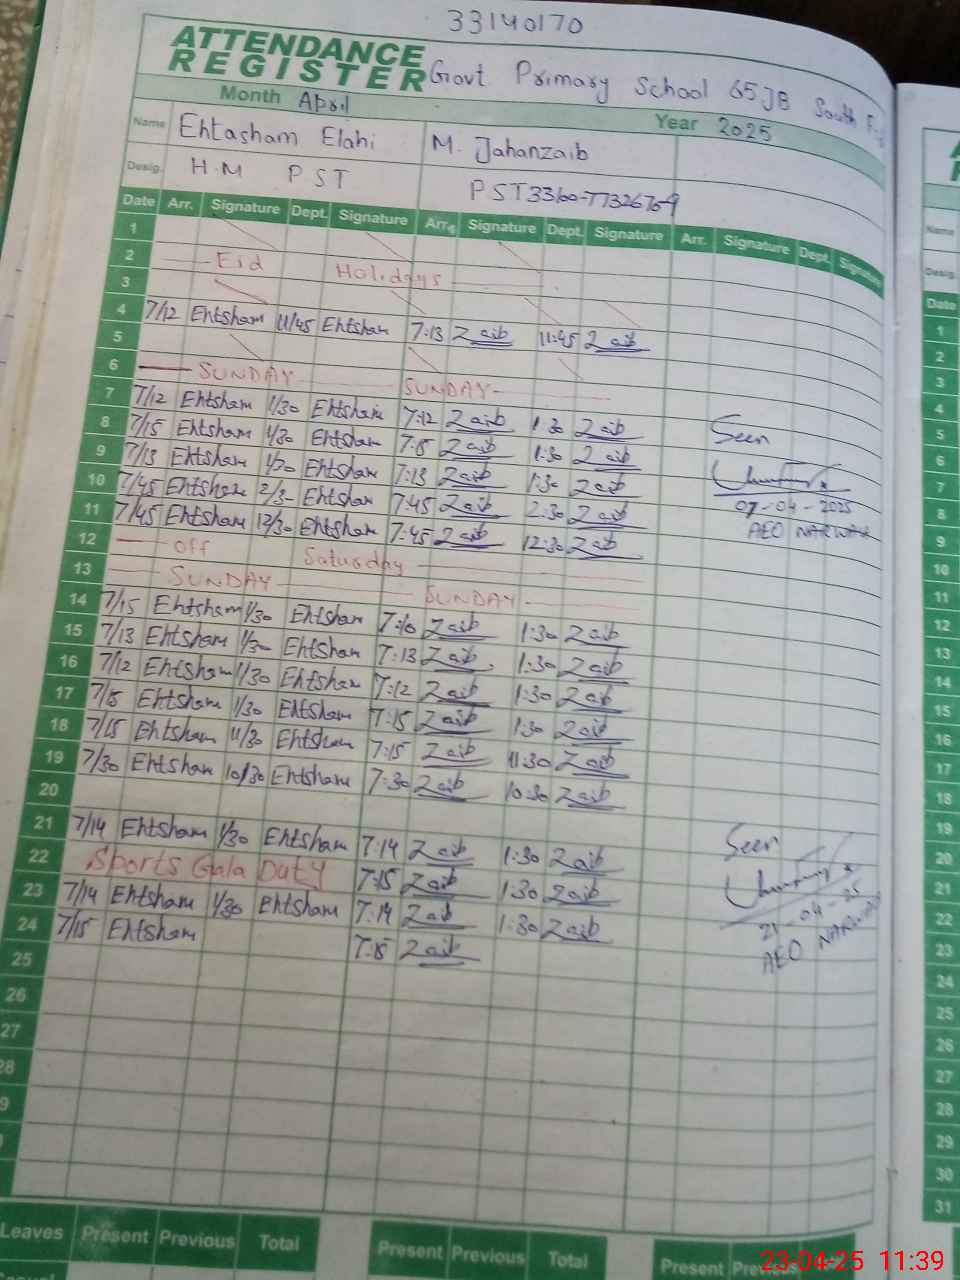 33140170
ATTENDANCE
REGISTER Govt Primary School 65JB South
Month April Year 2025
Name Ehtasham Elahi M. Jahanzaib
Desig. H.M PST PST 33100-7732676-9
Date Arr. Signature Dept. Signature Arr. Signature Dept. Signature Arr. Signature Dept. Signature
1
2 Eid Holidays
3
4 7/12 Ehtsham 11/45 Ehtsham 7:13 Zaib 11:45 Zaib
5
6 SUNDAY SUNDAY
7 7/12 Ehtsham 1/30 Ehtsham 7:12 Zaib 1:30 Zaib
8 7/15 Ehtsham 1/30 Ehtsham 7:15 Zaib 1:30 Zaib Seen
9 7/13 Ehtsham 1/30 Ehtsham 7:13 Zaib 1:30 Zaib
10 7/45 Ehtsham 2/30 Ehtsham 7:45 Zaib 2:30 Zaib 07-04-2025
11 7/45 Ehtsham 12/30 Ehtsham 7:45 Zaib 12:30 Zaib AEO NARWALA
12 Off Saturday
13 SUNDAY SUNDAY
14 7/15 Ehtsham 1/30 Ehtsham Zaib 1:30 Zaib
15 7/13 Ehtsham 1/30 Ehtsham 7:13 Zaib 1:30 Zaib
16 7/12 Ehtsham 1/30 Ehtsham 7:12 Zaib 1:30 Zaib
17 7/15 Ehtsham 1/30 Ehtsham 7:15 Zaib 1:30 Zaib
18 7/15 Ehtsham 11/30 Ehtsham 7:15 Zaib 11:30 Zaib
19 7/30 Ehtsham 10/30 Ehtsham 7:30 Zaib 10:30 Zaib
20
21 7/14 Ehtsham 1/30 Ehtsham 7:14 Zaib 1:30 Zaib Seen
22 Sports Gala Duty 7:15 Zaib 1:30 Zaib
23 7/14 Ehtsham 1/30 Ehtsham 7:14 Zaib 1:30 Zaib 21-04-25
24 7/15 Ehtsham 7:15 Zaib AEO NARWALA
25
26
27
28
9
Leaves Present Previous Total Present Previous Total Present Previous
Name
Desig.
Date
1
2
3
4
5
6
7
8
9
10
11
12
13
14
15
16
17
18
19
20
21
22
23
24
25
26
27
28
29
30
31
23-04-25 11:39